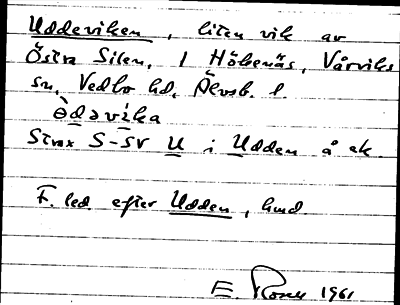 Uddeviken, liten vik av
Östra Silen, I Högenäs, Vårviks
sn, Vedbo hd, Älvsb. l.
Strax S-SV U i Udden å ek.
F. led efter Udden, hmd
E. 1961